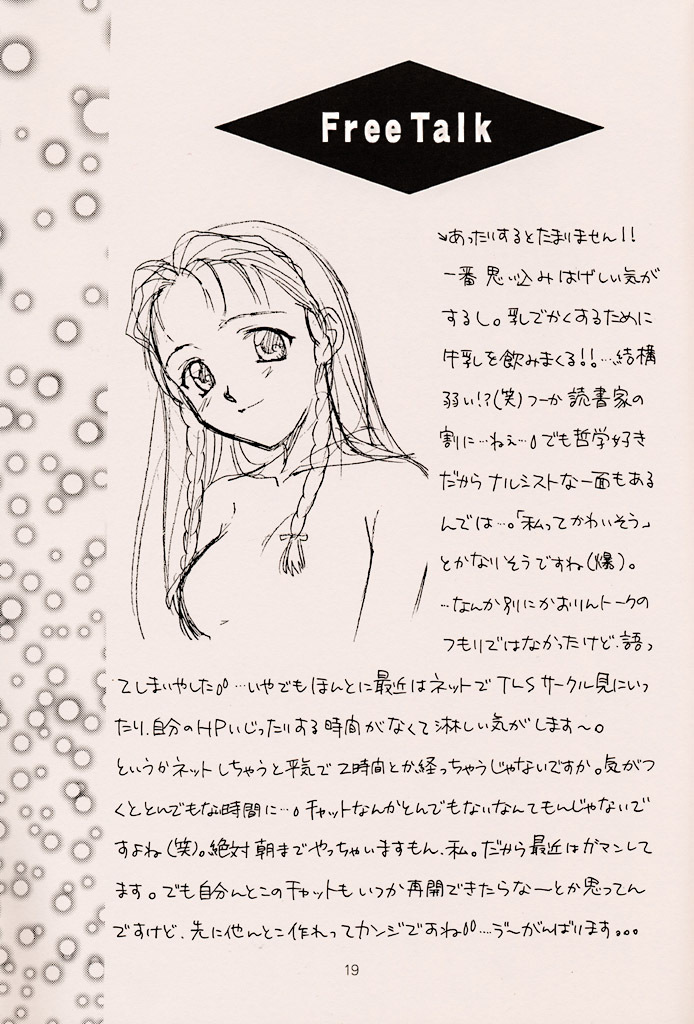 Free Talk
↘あったりするとたまりません!!
一番思い込みはげしい気が
するし。乳でかくするために
牛乳を飲みまくる!!…結構
弱い!?(笑)つーか読書家の
割に…ねぇ…。でも哲学好き
だからナルシストな一面もある
んでは…。「私ってかわいそう」
とかないそうですね(爆)。
…なんか別にかおりんトークの
つもりではなかったけど、語っ
てしまいやした00…いやでもほんとに最近はネットでTLSサークル見にいっ
たり、自分のHPいじったりする時間がなくて淋しい気がします〜。
というかネットしちゃうと平気で2時間とか経っちゃうじゃないですか。気がつ
くととんでもな時間に…。チャットなんかとんでもないなんてもんじゃないで
すよね(笑)。絶対朝までやっちゃいますもん、私。だから最近はガマンして
ます。でも自分んとこのチャットもいつか再開できたらなーとか思ってん
ですけど、先に他んとこ作れってカンジですね00…ゔ〜がんばります。。。
19